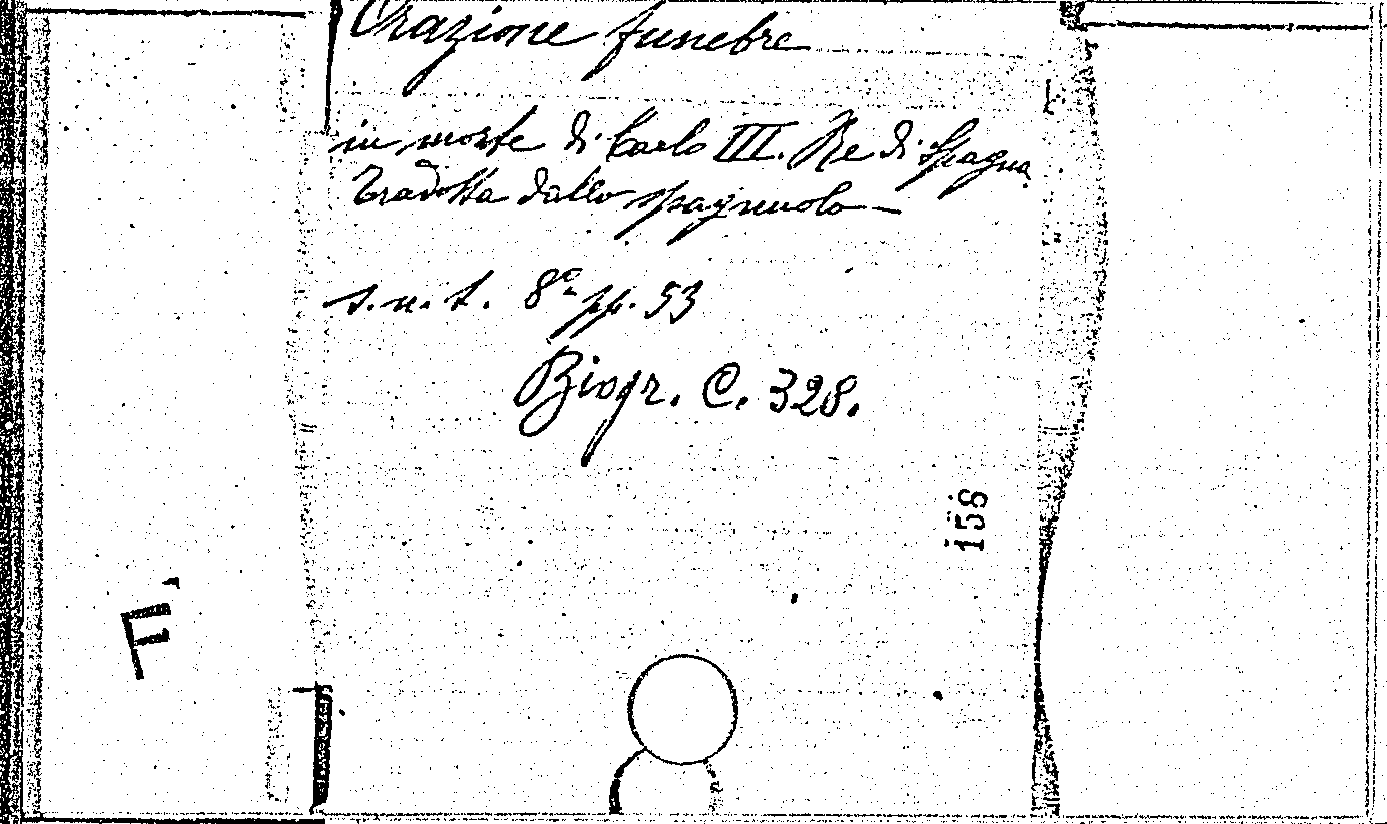 Orazione funebre
in morte di Carlo III. Re di Spagna
Tradotta dallo spagnuolo —
s. n. t. 8º pp. 53
Biogr. C. 328.
158
F